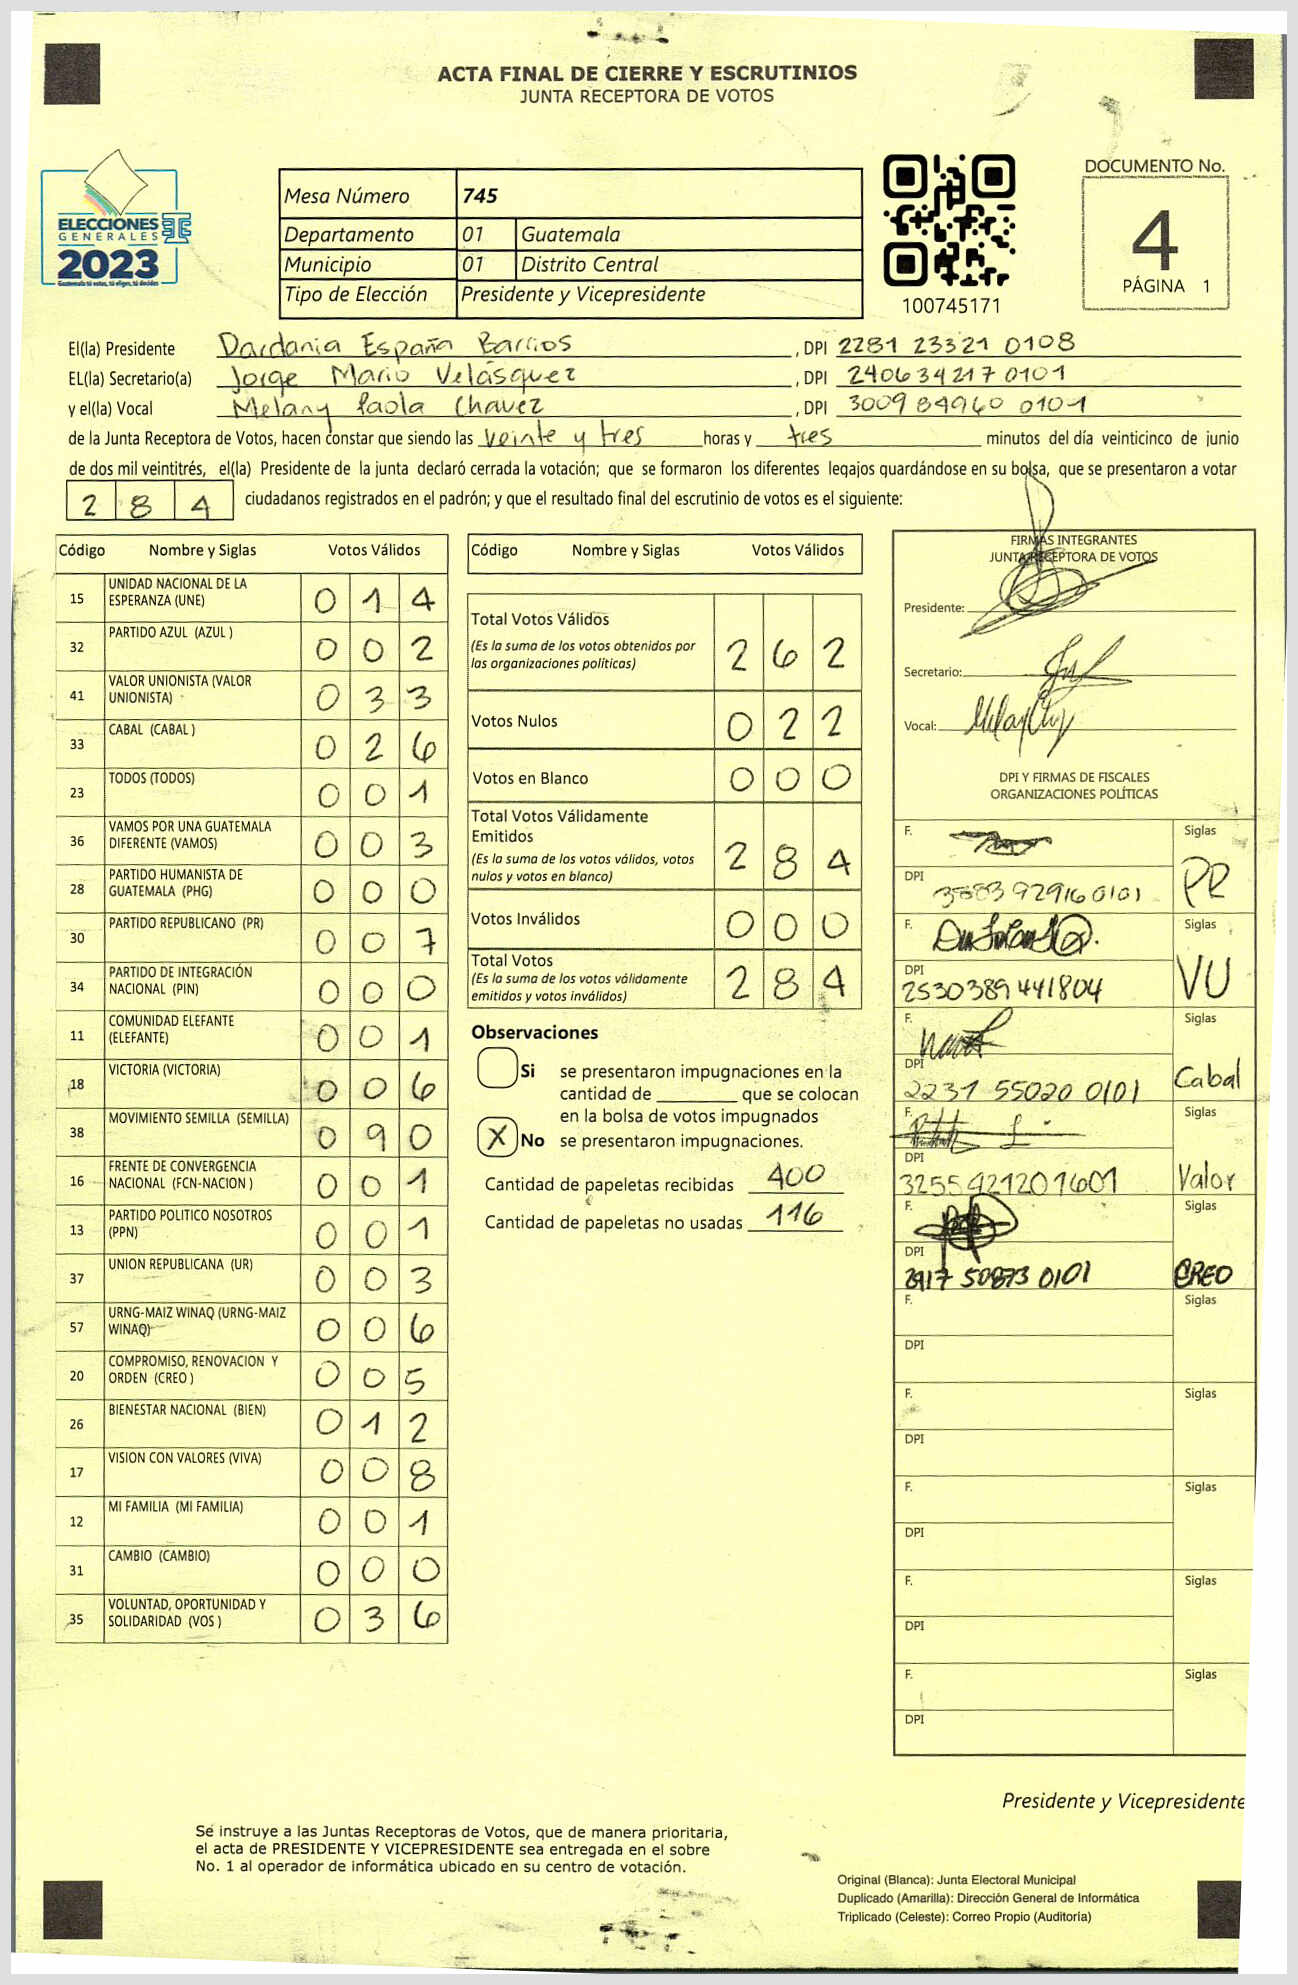 ACTA FINAL DE CIERRE Y ESCRUTINIOS
JUNTA RECEPTORA DE VOTOS
ELECCIONES
GENERALES
2023
Guatemala tú votas, tú eliges, tú decides
Mesa Número 745
Departamento 01 Guatemala
Municipio 01 Distrito Central
Tipo de Elección Presidente y Vicepresidente
100745171
DOCUMENTO No.
4
PÁGINA 1
El(la) Presidente Dardania España Barrios, DPI 2281 23321 0108
EL(la) Secretario(a) Jorge Mario Velásquez, DPI 240634217 0101
y el(la) Vocal Melany Paola Chavez, DPI 3009 84960 0101
de la Junta Receptora de Votos, hacen constar que siendo las veinte y tres horas y tres minutos del día veinticinco de junio
de dos mil veintitrés, el(la) Presidente de la junta declaró cerrada la votación; que se formaron los diferentes legajos guardándose en su bolsa, que se presentaron a votar
284 ciudadanos registrados en el padrón; y que el resultado final del escrutinio de votos es el siguiente:
Código Nombre y Siglas Votos Válidos
15 UNIDAD NACIONAL DE LA ESPERANZA (UNE) 014
32 PARTIDO AZUL (AZUL ) 002
41 VALOR UNIONISTA (VALOR UNIONISTA) 033
33 CABAL (CABAL ) 026
23 TODOS (TODOS) 001
36 VAMOS POR UNA GUATEMALA DIFERENTE (VAMOS) 003
28 PARTIDO HUMANISTA DE GUATEMALA (PHG) 000
30 PARTIDO REPUBLICANO (PR) 007
34 PARTIDO DE INTEGRACIÓN NACIONAL (PIN) 000
11 COMUNIDAD ELEFANTE (ELEFANTE) 001
18 VICTORIA (VICTORIA) 006
38 MOVIMIENTO SEMILLA (SEMILLA) 090
16 FRENTE DE CONVERGENCIA NACIONAL (FCN-NACION ) 001
13 PARTIDO POLITICO NOSOTROS (PPN) 001
37 UNION REPUBLICANA (UR) 003
57 URNG-MAIZ WINAQ (URNG-MAIZ WINAQ) 006
20 COMPROMISO, RENOVACION Y ORDEN (CREO ) 005
26 BIENESTAR NACIONAL (BIEN) 012
17 VISION CON VALORES (VIVA) 008
12 MI FAMILIA (MI FAMILIA) 001
31 CAMBIO (CAMBIO) 000
35 VOLUNTAD, OPORTUNIDAD Y SOLIDARIDAD (VOS ) 036
Código Nombre y Siglas Votos Válidos
Total Votos Válidos 262
(Es la suma de los votos obtenidos por
las organizaciones políticas)
Votos Nulos 022
Votos en Blanco 000
Total Votos Válidamente
Emitidos 284
(Es la suma de los votos válidos, votos
nulos y votos en blanco)
Votos Inválidos 000
Total Votos 284
(Es la suma de los votos válidamente
emitidos y votos inválidos)
Observaciones
Si se presentaron impugnaciones en la
cantidad de ________ que se colocan
en la bolsa de votos impugnados
X No se presentaron impugnaciones.
Cantidad de papeletas recibidas 400
Cantidad de papeletas no usadas 116
FIRMAS INTEGRANTES
JUNTA RECEPTORA DE VOTOS
Presidente:
Secretario:
Vocal:
DPI Y FIRMAS DE FISCALES
ORGANIZACIONES POLÍTICAS
F. Siglas
DPI PR
F. Siglas
DPI 2530389441804 VU
F. Siglas
DPI 2231 55020 0101 Cabal
F. Siglas
DPI 3255421201601 Valor
F. Siglas
DPI 0101 CREO
F. Siglas
DPI
F. Siglas
DPI
F. Siglas
DPI
F. Siglas
DPI
F. Siglas
DPI
Presidente y Vicepresidente
Se instruye a las Juntas Receptoras de Votos, que de manera prioritaria,
el acta de PRESIDENTE Y VICEPRESIDENTE sea entregada en el sobre
No. 1 al operador de informática ubicado en su centro de votación.
Original (Blanca): Junta Electoral Municipal
Duplicado (Amarilla): Dirección General de Informática
Triplicado (Celeste): Correo Propio (Auditoría)